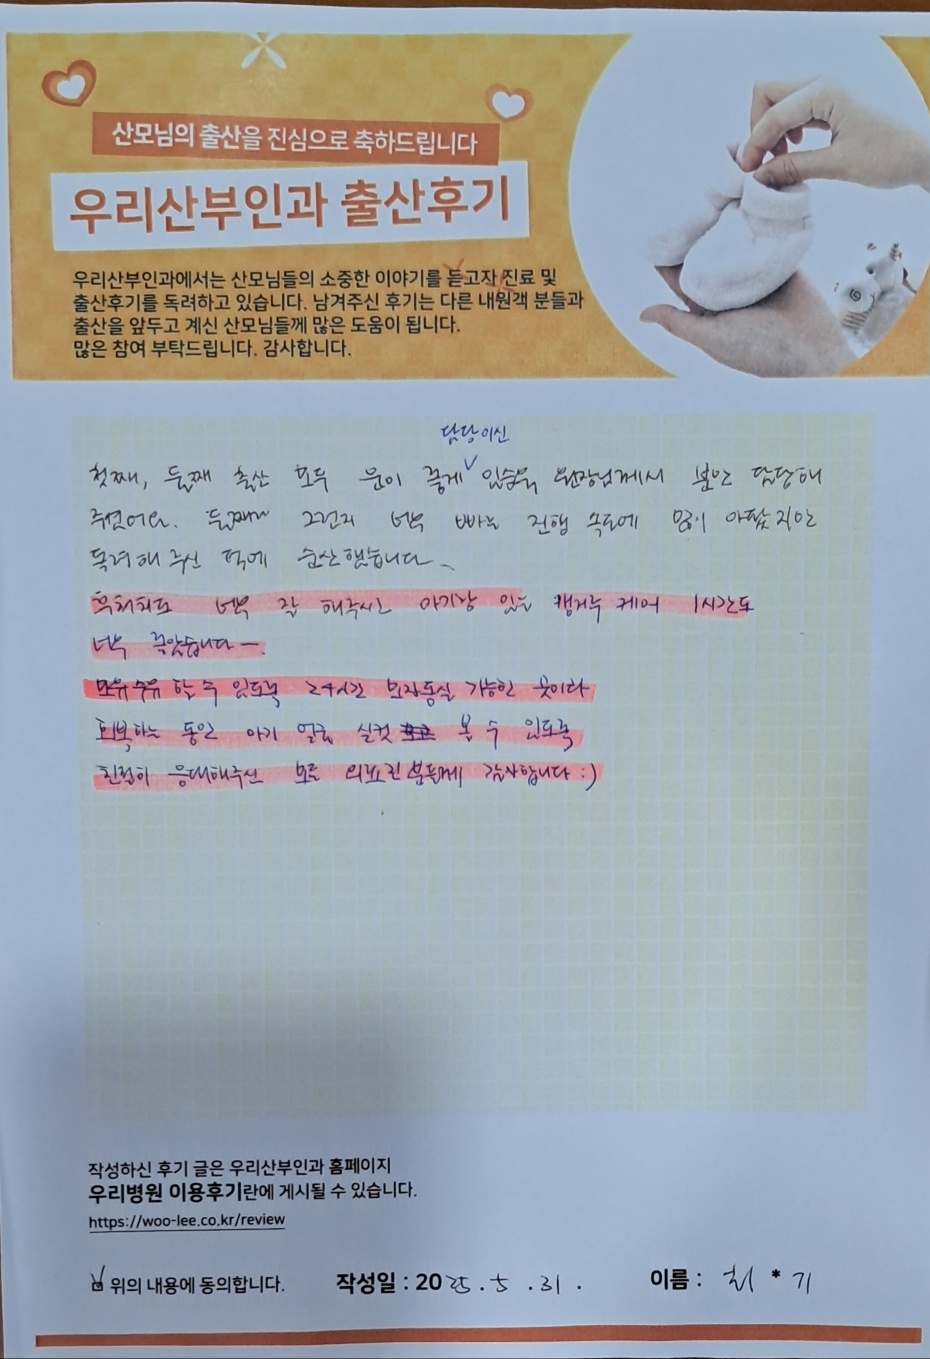 산모님의 출산을 진심으로 축하드립니다
우리산부인과 출산후기
우리산부인과에서는 산모님들의 소중한 이야기를 듣고자 진료 및
출산후기를 독려하고 있습니다. 남겨주신 후기는 다른 내원객 분들과
출산을 앞두고 계신 산모님들께 많은 도움이 됩니다.
많은 참여 부탁드립니다. 감사합니다.
담당이신
첫째, 둘째 출산 모두 운이 좋게 원장님께서 분만 담당해
주셨어요. 둘째는 너무 빠른 진행 속도에 많이 아팠지만
독려해 주신 덕에 순산했습니다~
후처치도 너무 잘 해주시고 아기랑 있는 캥거루 케어 1시간도
너무 좋았습니다ㅡ.
모유수유 할 수 있도록 24시간 모자동실 가능한 곳이라
회복하는 동안 아기 얼굴 실컷 볼 수 있도록
친절히 응대해주신 모든 의료진분들께 감사합니다 :)
작성하신 후기 글은 우리산부인과 홈페이지
우리병원 이용후기란에 게시될 수 있습니다.
https://woo-lee.co.kr/review
위의 내용에 동의합니다. 작성일 : 2025.5.31. 이름 : 최 * 기